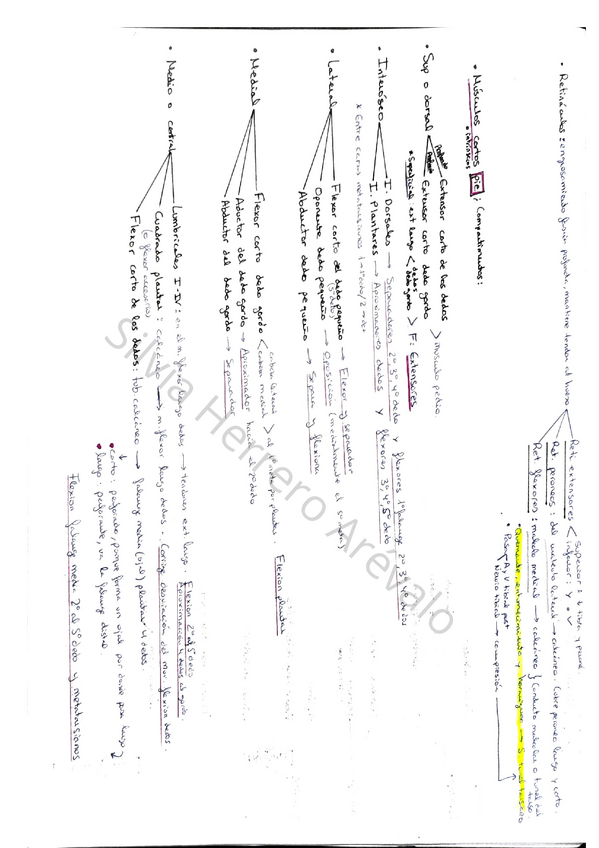 • Retináculos: engrosamiento fascia profunda, mantiene tendón al hueso
Ret. extensores
Superior: tibia y peroné
inferior: Y o V
Ret. peroneos: del maléolo lateral → calcáneo. Cubre peroneo largo y corto.
Ret. flexores: maléolo medial → calcáneo } Conducto maleolar o túnel del tarso
• Quemazón, entumecimiento y hormigueo → S. túnel tarsiano
• Pasa A, V tibial post
Nervio tibial → compresión
• Músculos cortos pie; Compartimentos:
• intrínsecos
• Sup o dorsal
Profundo Extensor corto de los dedos
Profundo Extensor corto dedo gordo
> músculo pedio
* Superficial: ext largo < dedos
dedo gordo > F: Extensores
• Interóseo
I. Dorsales → Separadores 2º 3º 4º dedo y flexores 1ª falange 2º, 3º 4º dedos
I. Plantares → Aproximadores dedos y flexores 3º, 4º, 5º dedo
* Entre caras metatarsianos
• Lateral
Flexor corto del dedo pequeño → Flexor y separador
(5º dedo)
Oponente dedo pequeño → Oposición (medialmente el 5º meta)
Abductor dedo pequeño → Separa y flexiona
• Medial
Flexor corto dedo gordo < cabeza lateral
cabeza medial
Flexión plantar
Aductor del dedo gordo → Aproximador hacia el 2º dedo
Abductor del dedo gordo → Separador
• Medio o central
Lumbricales I-IV: en el m. flexor largo dedos → tendones ext. largo.
Flexión 2º al 5º dedo
Aproximador 4 dedos al gordo
Cuadrado plantar: calcáneo → m. flexor largo dedos. Corrige desviación del mov. flexión dedos.
(o flexor accesorio)
Flexor corto de los dedos: tub. calcáneo → falange media (ojal) plantar 4 dedos.
• corto: perforado, porque forma un ojal por donde pasa largo
• largo: perforante, va la falange distal.
Flexión falange media 2º al 5º dedo y metatarsianos
Silvia Herrero Arévalo